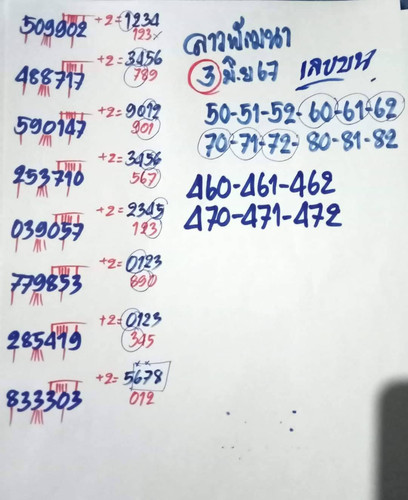 509902 +2= 1234
123
488717 +2= 3456
789
590147 +2= 9012
901
253710 +2= 3456
567
039057 +2= 2345
123
779853 +2= 0123
890
285419 +2= 0123
345
833303 +2= 5678
012
ลาวพัฒนา
3 มิ.ย 67 เลขบน
50-51-52-60-61-62
70-71-72-80-81-82
460-461-462
470-471-472